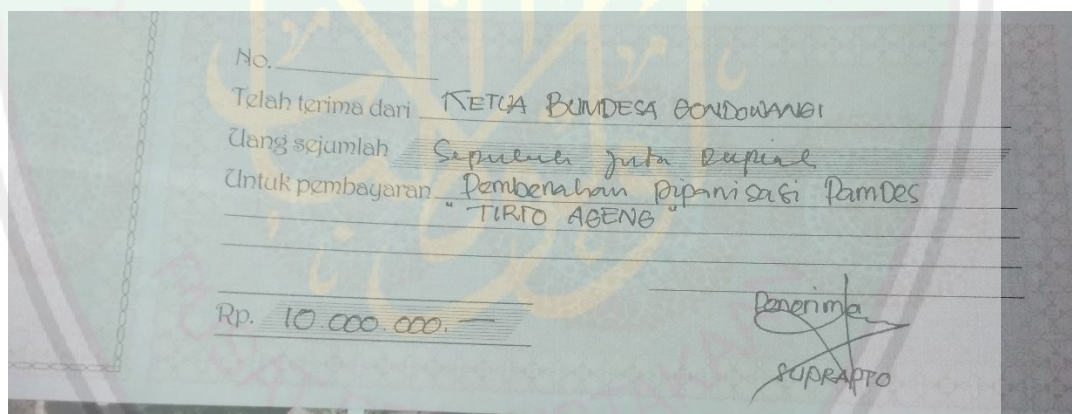 No.
Telah terima dari KETUA BUMDESA GONDOWANGI
Uang sejumlah Sepuluh Juta Rupiah
Untuk pembayaran Pembenahan pipanisasi PamDes
" TIRTO AGENG "
Rp. 10.000.000.—
Penerima
SUPRAPTO